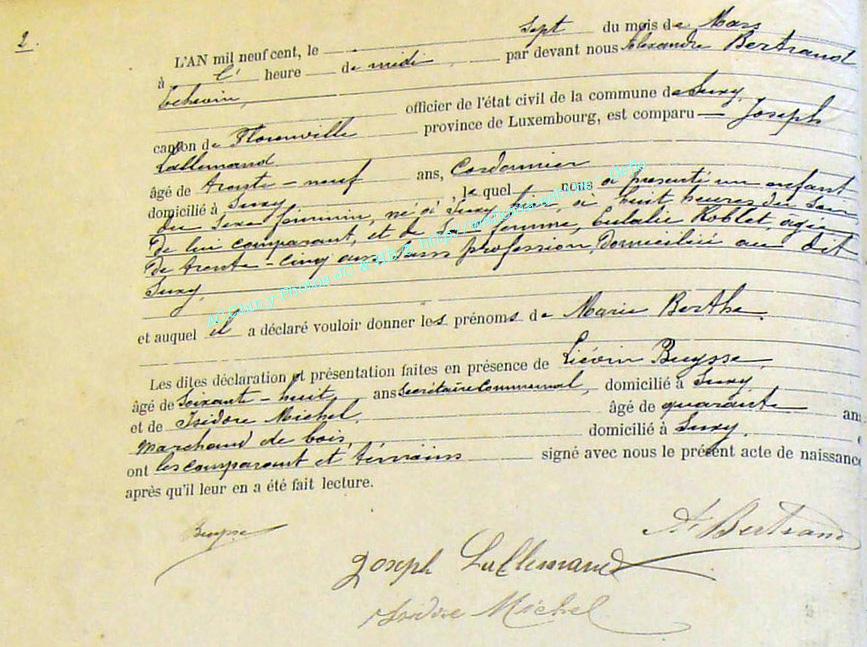 2.
L'AN mil neuf cent, le sept du mois de Mars
à l' heure de midi, par devant nous Alexandre Bertrand
Echevin, officier de l'état civil de la commune de Suxy,
canton de Florenville province de Luxembourg, est comparu Joseph
Lallemand
âgé de trente-neuf ans, Cordonnier
domicilié à Suxy, lequel nous a présenté un enfant
du sexe féminin, né à Suxy hier, à huit heures du soir
de lui comparant, et de sa femme, Eulalie Roblet, âgée
de trente-cinq ans, sans profession, domiciliée au dit
Suxy,
et auquel il a déclaré vouloir donner les prénoms de Marie Berthe.
Les dites déclaration et présentation faites en présence de Liévin Buysse,
âgé de soixante-huit ans Secrétaire Communal, domicilié à Suxy
et de Isidore Michel, âgé de quarante ans
marchand de bois, domicilié à Suxy.
ont les comparant et témoins signé avec nous le présent acte de naissance
après qu'il leur en a été fait lecture.
Buysse
A. Bertrand
Joseph Lallemand
Isidore Michel